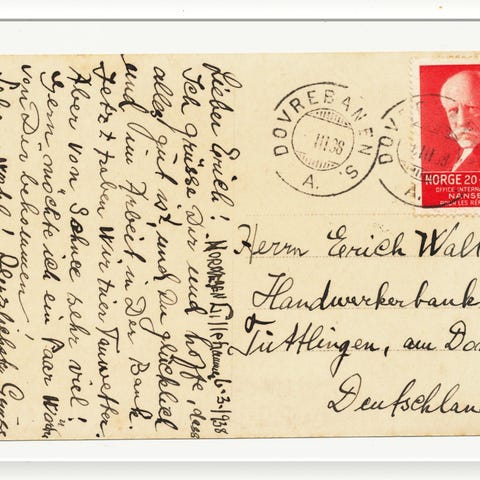 NORWEGEN Lillehammer, 6-3-1938
Lieber Erich!
Ich grüsse Dir und hoffe, dass
alles gut ist, und Du glücklich
und Dim Arbeit in Der Bank.
Jetzt haben wir hier Tauwetter.
Aber von Schnee sehr viel!
Gern möchte ich ein Paar Worte
von Dir bekommen!
Lebe Wohl!
DOVREBANEN S
III 38
A.
DOV
III 38
A
NORGE 20+
OFFICE INTERNA
NANSE
POUR LES RÉF
Herrn Erich Walt
Handwerkerbank
Tuttlingen, am Do
Deutschlan